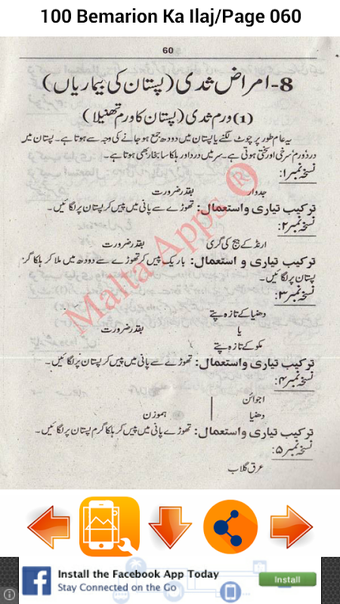 100 Bemarion Ka Ilaj/Page 060
60
8- امراض ثدی (پستان کی بیماریاں)
(۱) ورم ثدی (پستان کا ورم تھنیلا)
یہ عام طور پر چوٹ لگنے یا پستان میں دودھ جمع ہو جانے کی وجہ سے ہوتا ہے۔ پستان میں
درد ورم سرخی اور سختی ہوتی ہے۔ سر میں درد اور ہلکا سا بخار بھی ہوتا ہے۔
نسخہ نمبر ۱:
جدوار بقدر ضرورت
ترکیب تیاری و استعمال: تھوڑے سے پانی میں پیس کر پستان پر لگائیں۔
نسخہ نمبر ۲:
ارنڈ کے بیج کی گری بقدر ضرورت
ترکیب تیاری و استعمال: باریک پیس کر تھوڑے سے دودھ میں ملا کر ہلکا گرم
پستان پر لگائیں۔
نسخہ نمبر ۳:
دھنیا کے تازہ پتے
یا بقدر ضرورت
مکو کے تازہ پتے
ترکیب تیاری و استعمال: تھوڑے سے پانی میں پیس کر پستان پر لگائیں۔
نسخہ نمبر ۴:
اجوائن
دھنیا ہموزن
ترکیب تیاری و استعمال: تھوڑے سے پانی میں پیس کر ہلکا گرم پستان پر لگائیں۔
نسخہ نمبر ۵:
عرق گلاب
Malta Apps ®
Install the Facebook App Today
Stay Connected on the Go
Install